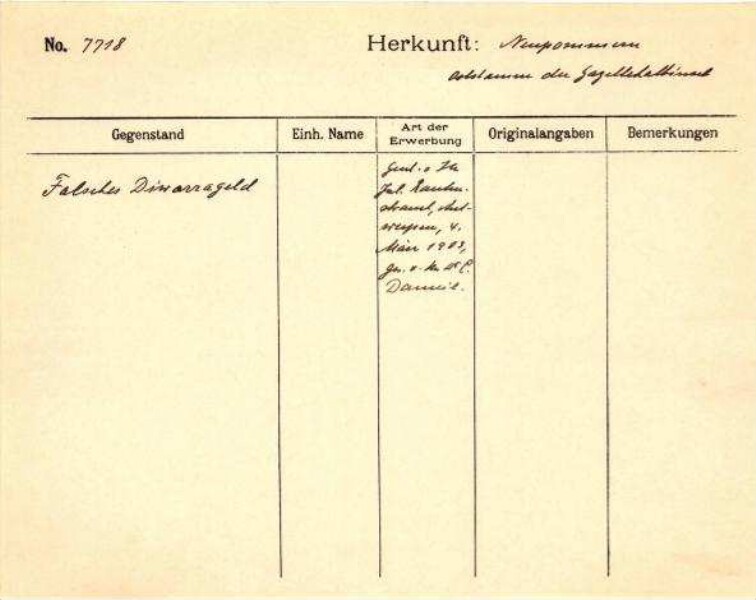 No. 7718
Herkunft: Neupommern
der Gazellehalbinsel
Gegenstand
Einh. Name
Art der
Erwerbung
Originalangaben
Bemerkungen
Falsches Diwarrageld
Gesch. v. Hr.
Jul. Rauten-
strauch, Ant-
werpen, 4.
März 1903,
ges. v. Hr. Dr. C.